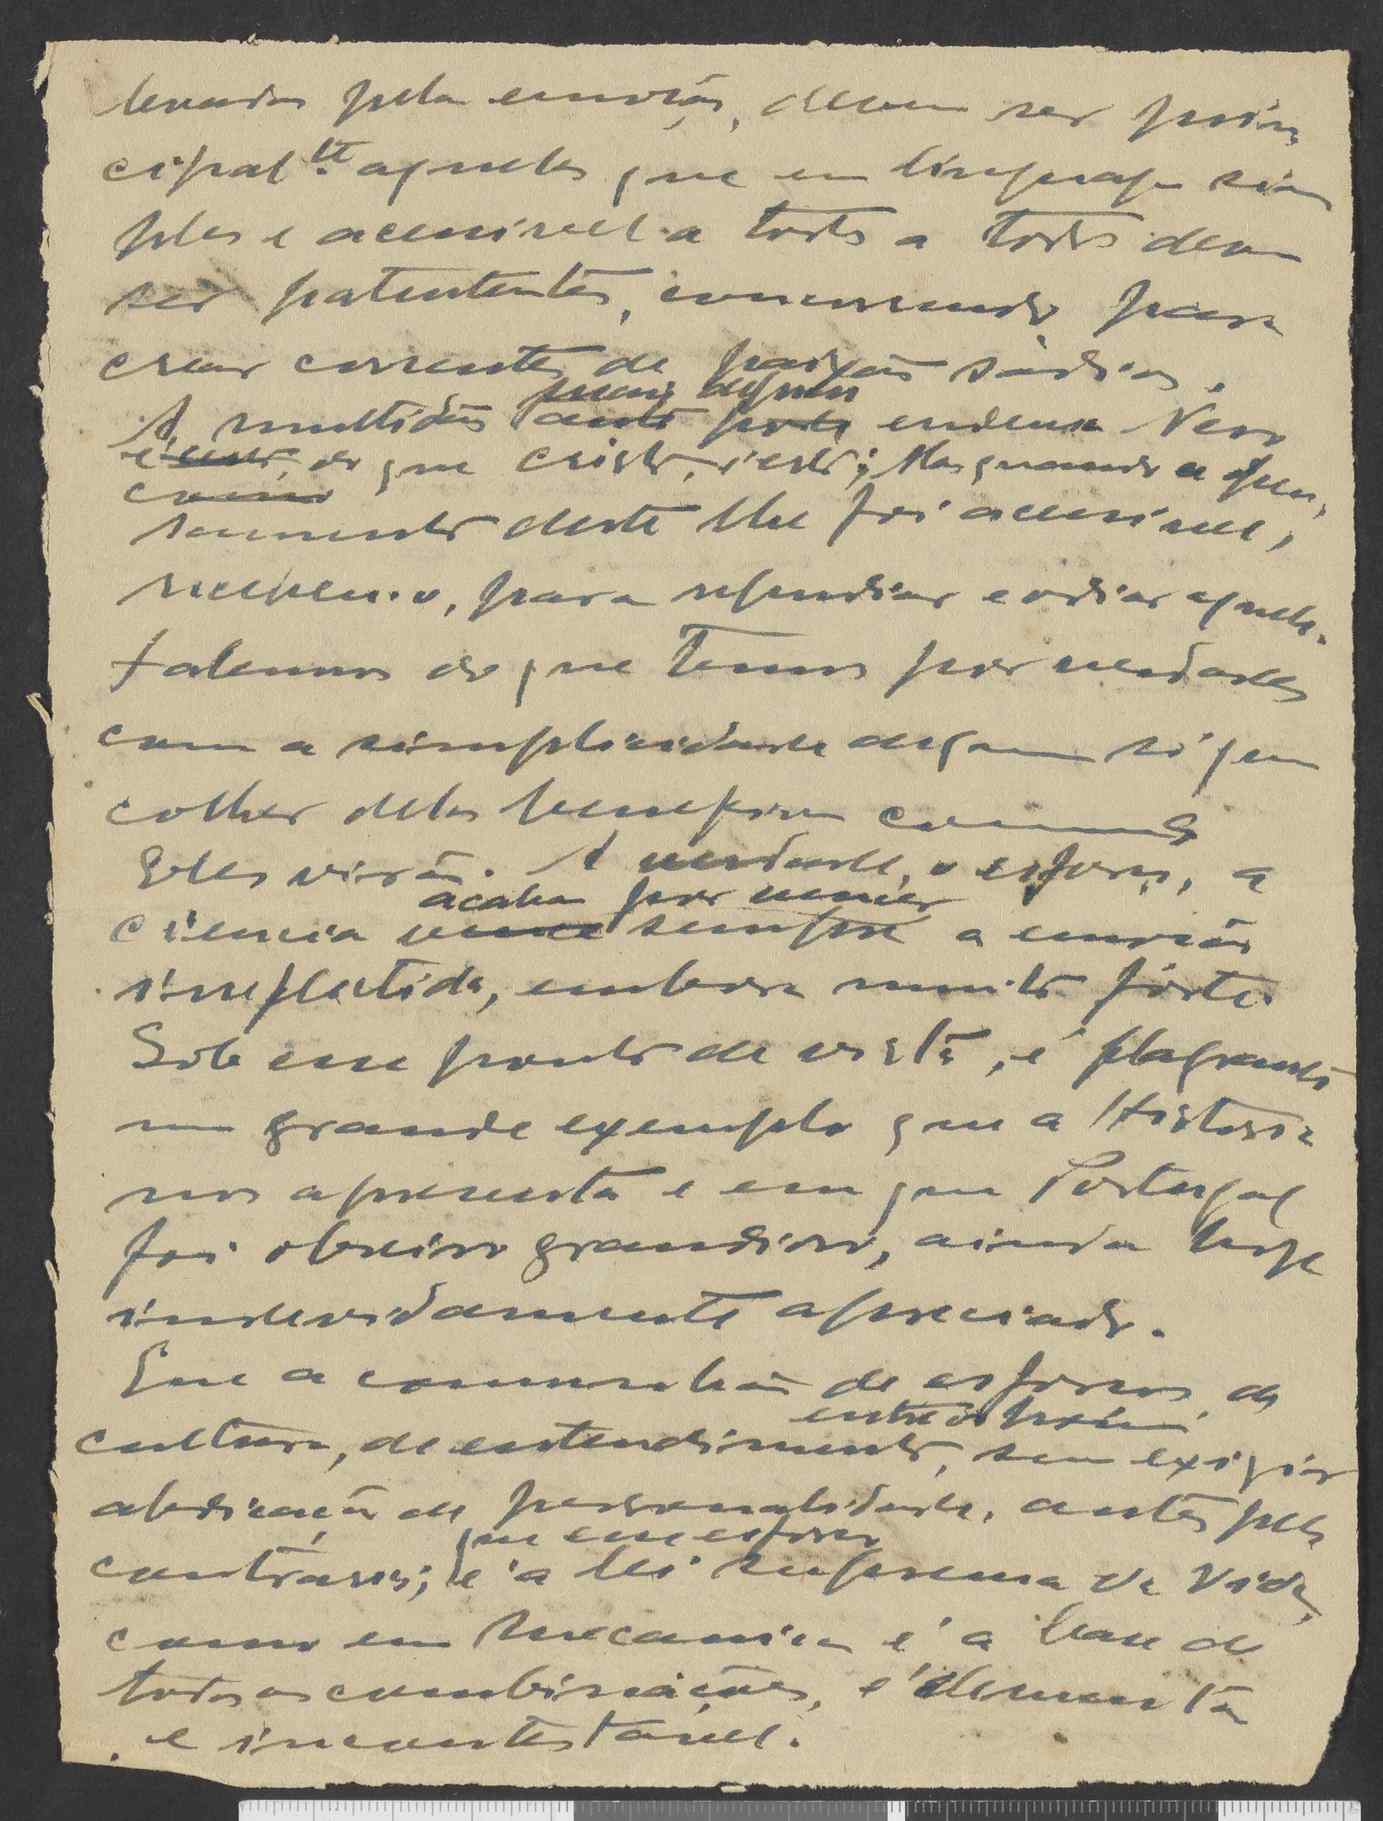 levados pela emoção, devem ser prin-
cipalte. aqueles que em linguagem sim
ples e acessivel a todos a todos devem
ser patenteados, concorrendo para
crear correntes de paixões sàdias.
mais depressa
A multidão endeusa Nero
é certo, do que Cristo, é certo; Mas quando o pen-
como
samento deste lhe foi acessivel,
recebeu-o, para repudiar e odiar aquele.
Falemos do que temos por verdades
com a simplicidade de quem só quer
colher delas beneficios comuns
Eles virão. A verdade, o esforço, a
acaba por vencer
ciencia vence sempre a emoção
irreflectida, embora muito fórte.
Sob esse ponto de vista, é flagrante
um grande exemplo que a Historia
nos apresenta e em que Portugal
foi obreiro grandioso, ainda hoje
indevidamente apreciado.
Que a comunhão de esforços, de
entre os homens
cultura, de entendimento, sem exigir
abdicação de personalidade, antes pelo
que esse esforço
contrario; é a lei suprema da Vida,
como em mecanica é a base de
todas as combinações, é elementar
e incontestavel.